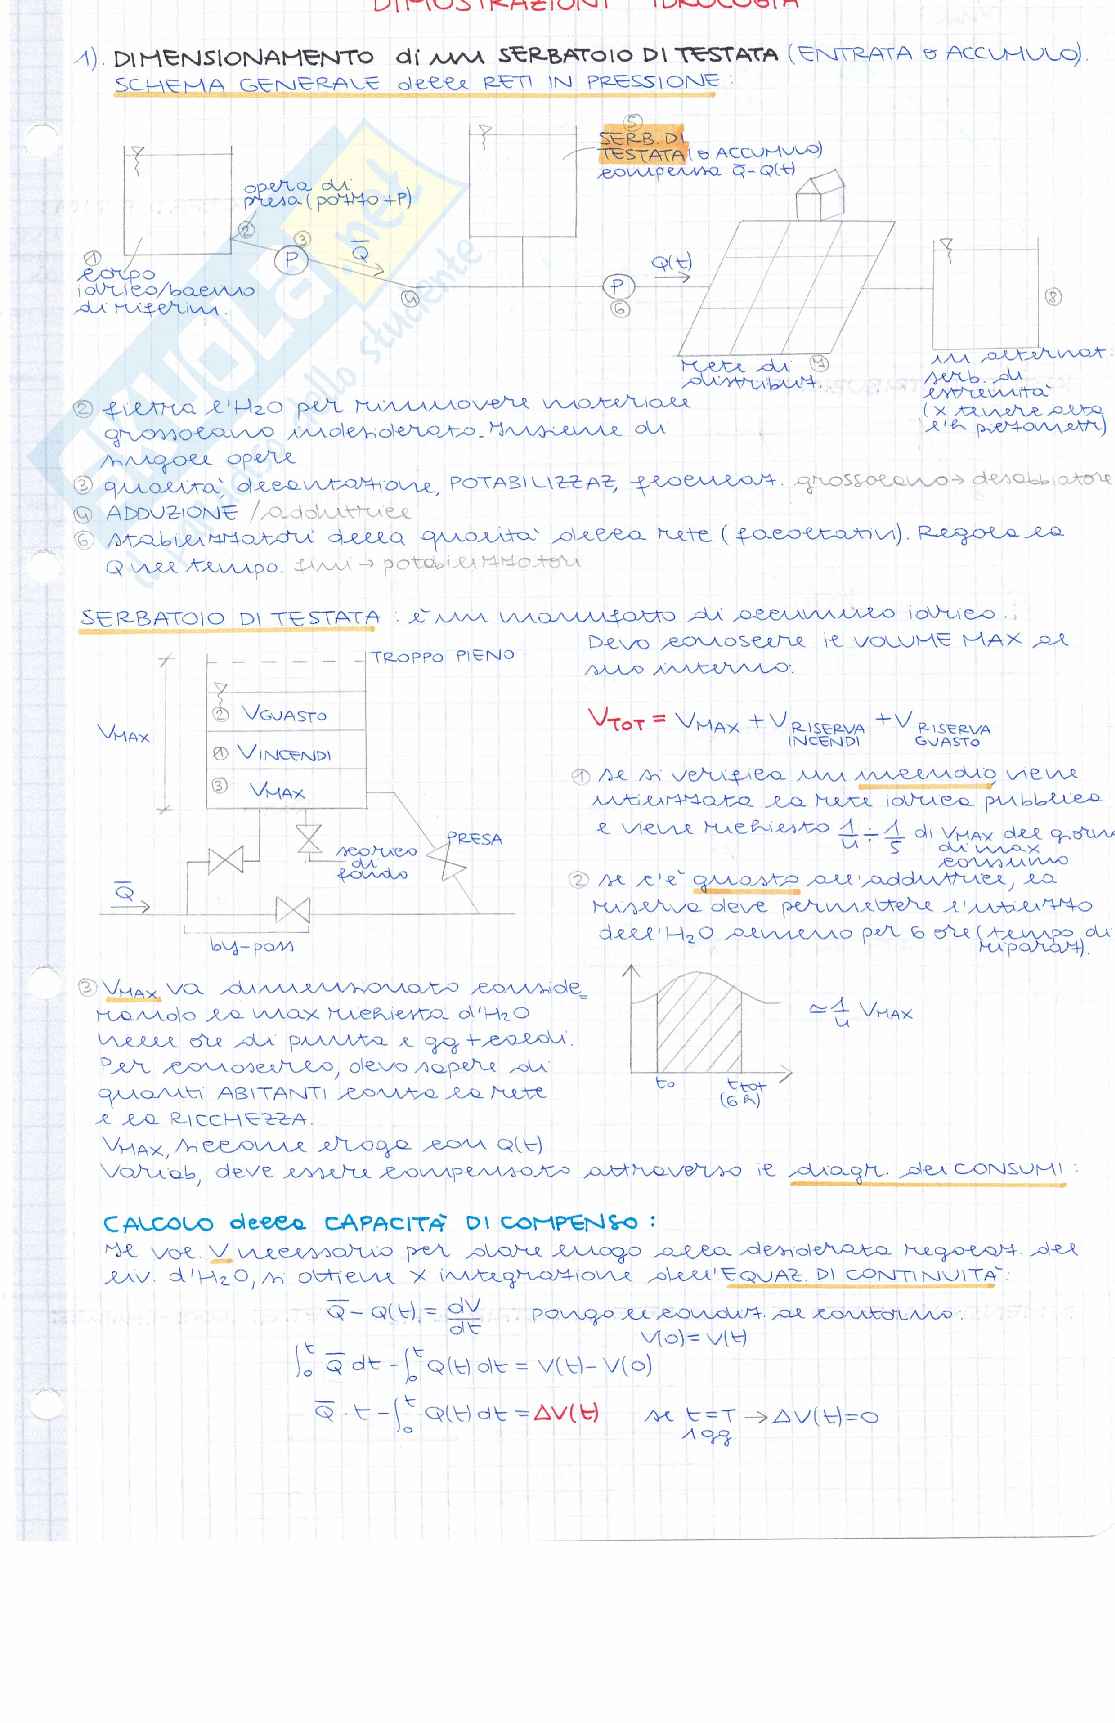 DIMOSTRAZIONI IDROLOGIA
1). DIMENSIONAMENTO di un SERBATOIO DI TESTATA (ENTRATA o ACCUMULO).
SCHEMA GENERALE delle RETI IN PRESSIONE:
5
SERB. DI
TESTATA (o ACCUMULO)
compensa Q̅-Q(t)
opera di
presa (pozzo+P)
2
3
P
Q̅
1
corpo
idrico/bacino
di riferim.
4
P
6
Q(t)
8
rete di 7
distribuz.
in alternat.
serb. di
estremità
(x tenere alta
l'h piezometr)
2 filtra l'H2O per rimuovere materiale
grossolano indesiderato. Insieme di
singole opere
3 qualità decantazione, POTABILIZZAZ, flocculaz. grossolano → desabbiatore
4 ADDUZIONE / adduttrice
6 stabilizzatori della qualità della rete (facoltativi). Regola la
Q nel tempo. fini → potabilizzatori
SERBATOIO DI TESTATA: è un manufatto di accumulo idrico.
Devo conoscere il VOLUME MAX al
suo interno:
TROPPO PIENO
VMAX
2 VGUASTO
1 VINCENDI
3 VMAX
PRESA
scarico
di
fondo
Q̅
by-pass
VTOT = VMAX + V RISERVA INCENDI + V RISERVA GUASTO
1 se si verifica un incendio viene
utilizzata la rete idrica pubblica
e viene richiesto 1/4 ÷ 1/5 di VMAX del giorno
di max
consumo
2 se c'è guasto all'adduttrice, la
riserva deve permettere l'utilizzo
dell'H2O almeno per 6 ore (tempo di
riparaz).
3 VMAX va dimensionato conside_
rando la max richiesta d'H2O
nelle ore di punta e gg + caldi.
Per conoscerlo, devo sapere di
quanti ABITANTI conta la rete
e la RICCHEZZA.
VMAX, siccome eroga con Q(t)
variab, deve essere compensato attraverso il diagr. dei CONSUMI:
t0
ttot
(6h)
≃ 1/4 VMAX
CALCOLO della CAPACITÀ DI COMPENSO:
Il vol. V necessario per dare luogo alla desiderata regolaz. del
liv. d'H2O, si ottiene x integrazione dell'EQUAZ. DI CONTINUITÀ:
Q̅ - Q(t) = dV/dt pongo le condiz. al contorno:
V(0) = V(t)
∫0^t Q̅ dt - ∫0^t Q(t) dt = V(t) - V(0)
Q̅ · t - ∫0^t Q(t) dt = ΔV(t) se t=T → ΔV(t)=0
1gg